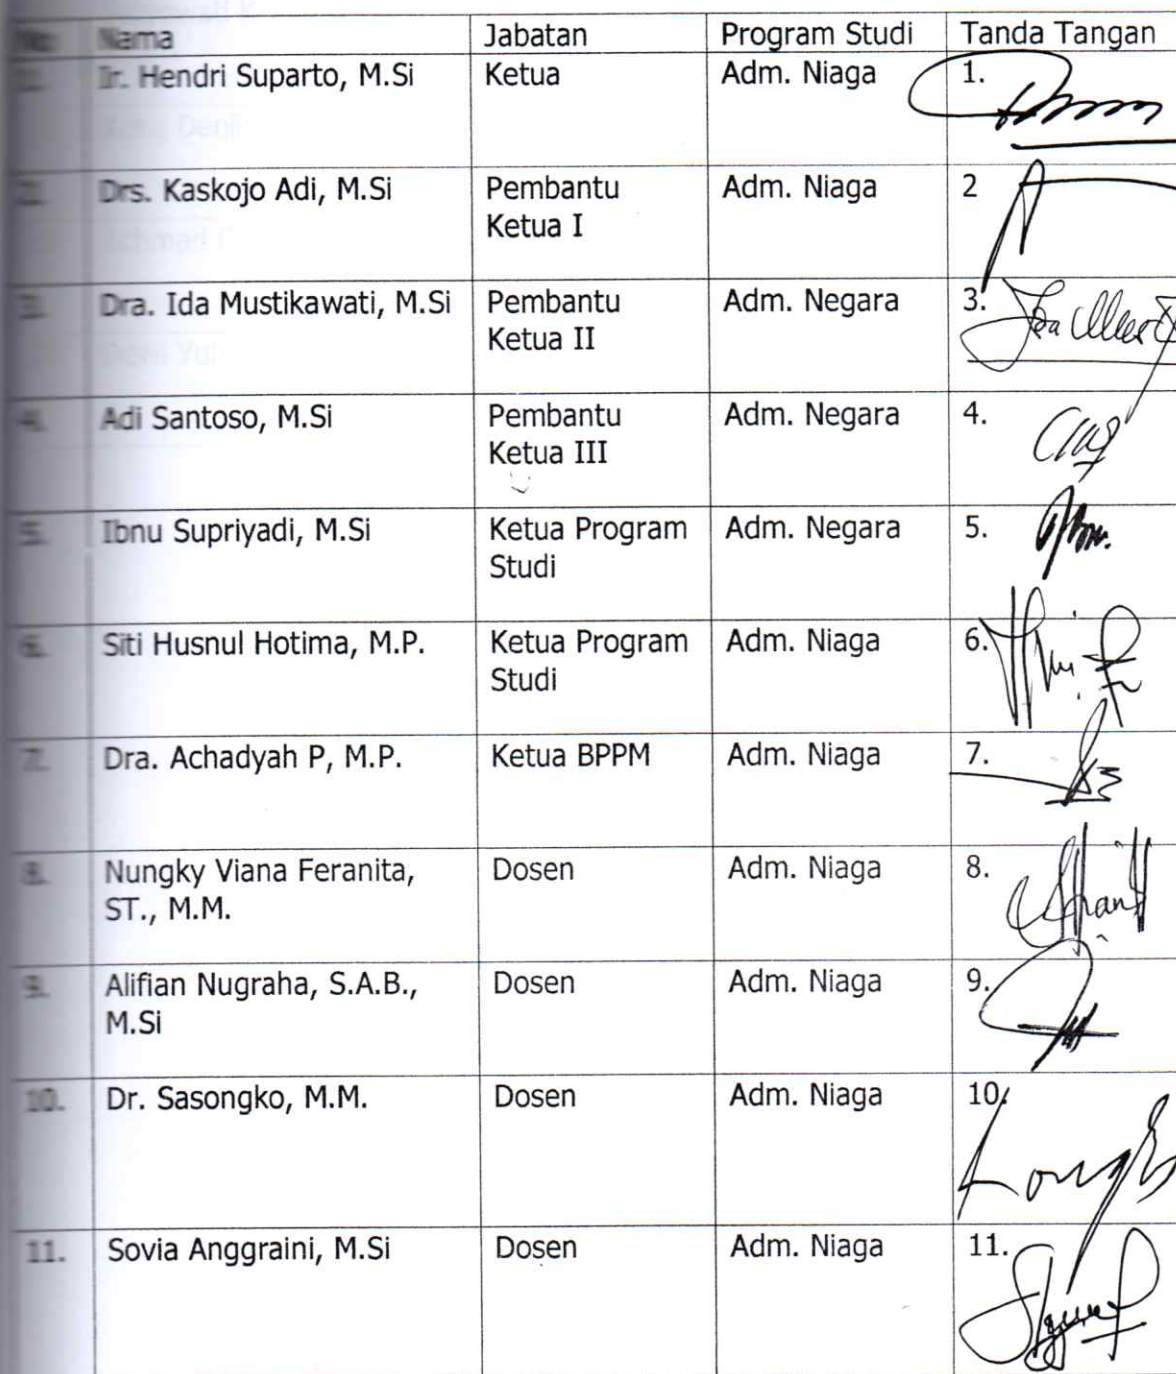 No Nama Jabatan Program Studi Tanda Tangan
1. Ir. Hendri Suparto, M.Si Ketua Adm. Niaga 1.
2. Drs. Kaskojo Adi, M.Si Pembantu Adm. Niaga 2
Ketua I
3. Dra. Ida Mustikawati, M.Si Pembantu Adm. Negara 3.
Ketua II
4. Adi Santoso, M.Si Pembantu Adm. Negara 4.
Ketua III
5. Ibnu Supriyadi, M.Si Ketua Program Adm. Negara 5.
Studi
6. Siti Husnul Hotima, M.P. Ketua Program Adm. Niaga 6.
Studi
7. Dra. Achadyah P, M.P. Ketua BPPM Adm. Niaga 7.
8. Nungky Viana Feranita, Dosen Adm. Niaga 8.
ST., M.M.
9. Alifian Nugraha, S.A.B., Dosen Adm. Niaga 9.
M.Si
10. Dr. Sasongko, M.M. Dosen Adm. Niaga 10.
11. Sovia Anggraini, M.Si Dosen Adm. Niaga 11.